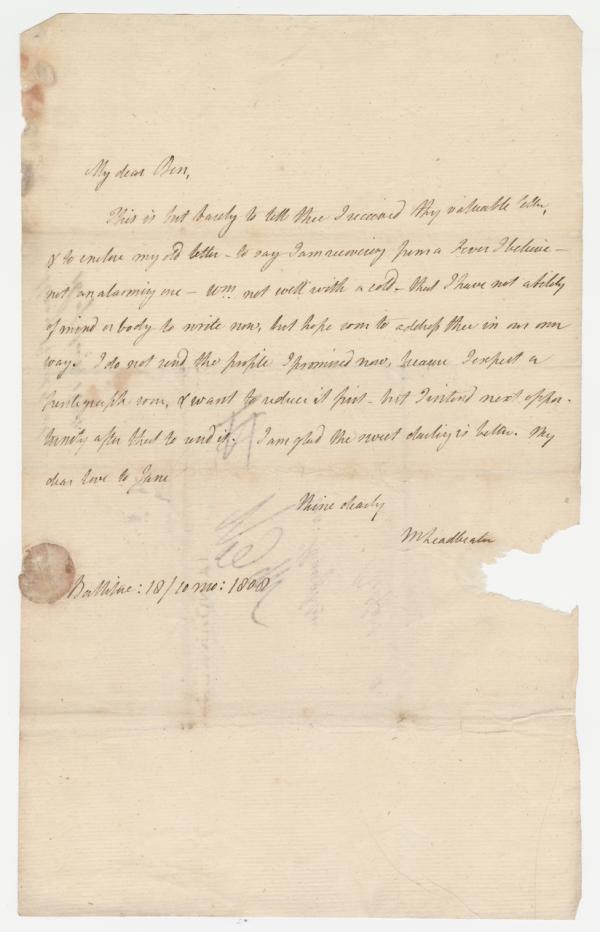 My dear Ben,
This is but barely to tell thee I received thy valuable letter,
& to enclose my old letter - to say I am recovering from a Fever I believe -
not an alarming one - Wm. not well with a cold - that I have not ability
of mind or body to write now, but hope soon to address thee in our own
way. I do not send the profile I promised now, because I expect a
soon, & want to reduce it first - but I intend next oppor-
tunity after that to send it. I am glad the sweet darling is better. My
dear love to Jane
thine dearly
M Leadbeater
Ballitore: 18/10 mo: 1808